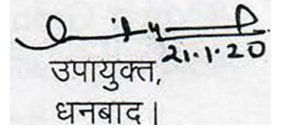 21.1.20
उपायुक्त,
धनबाद।